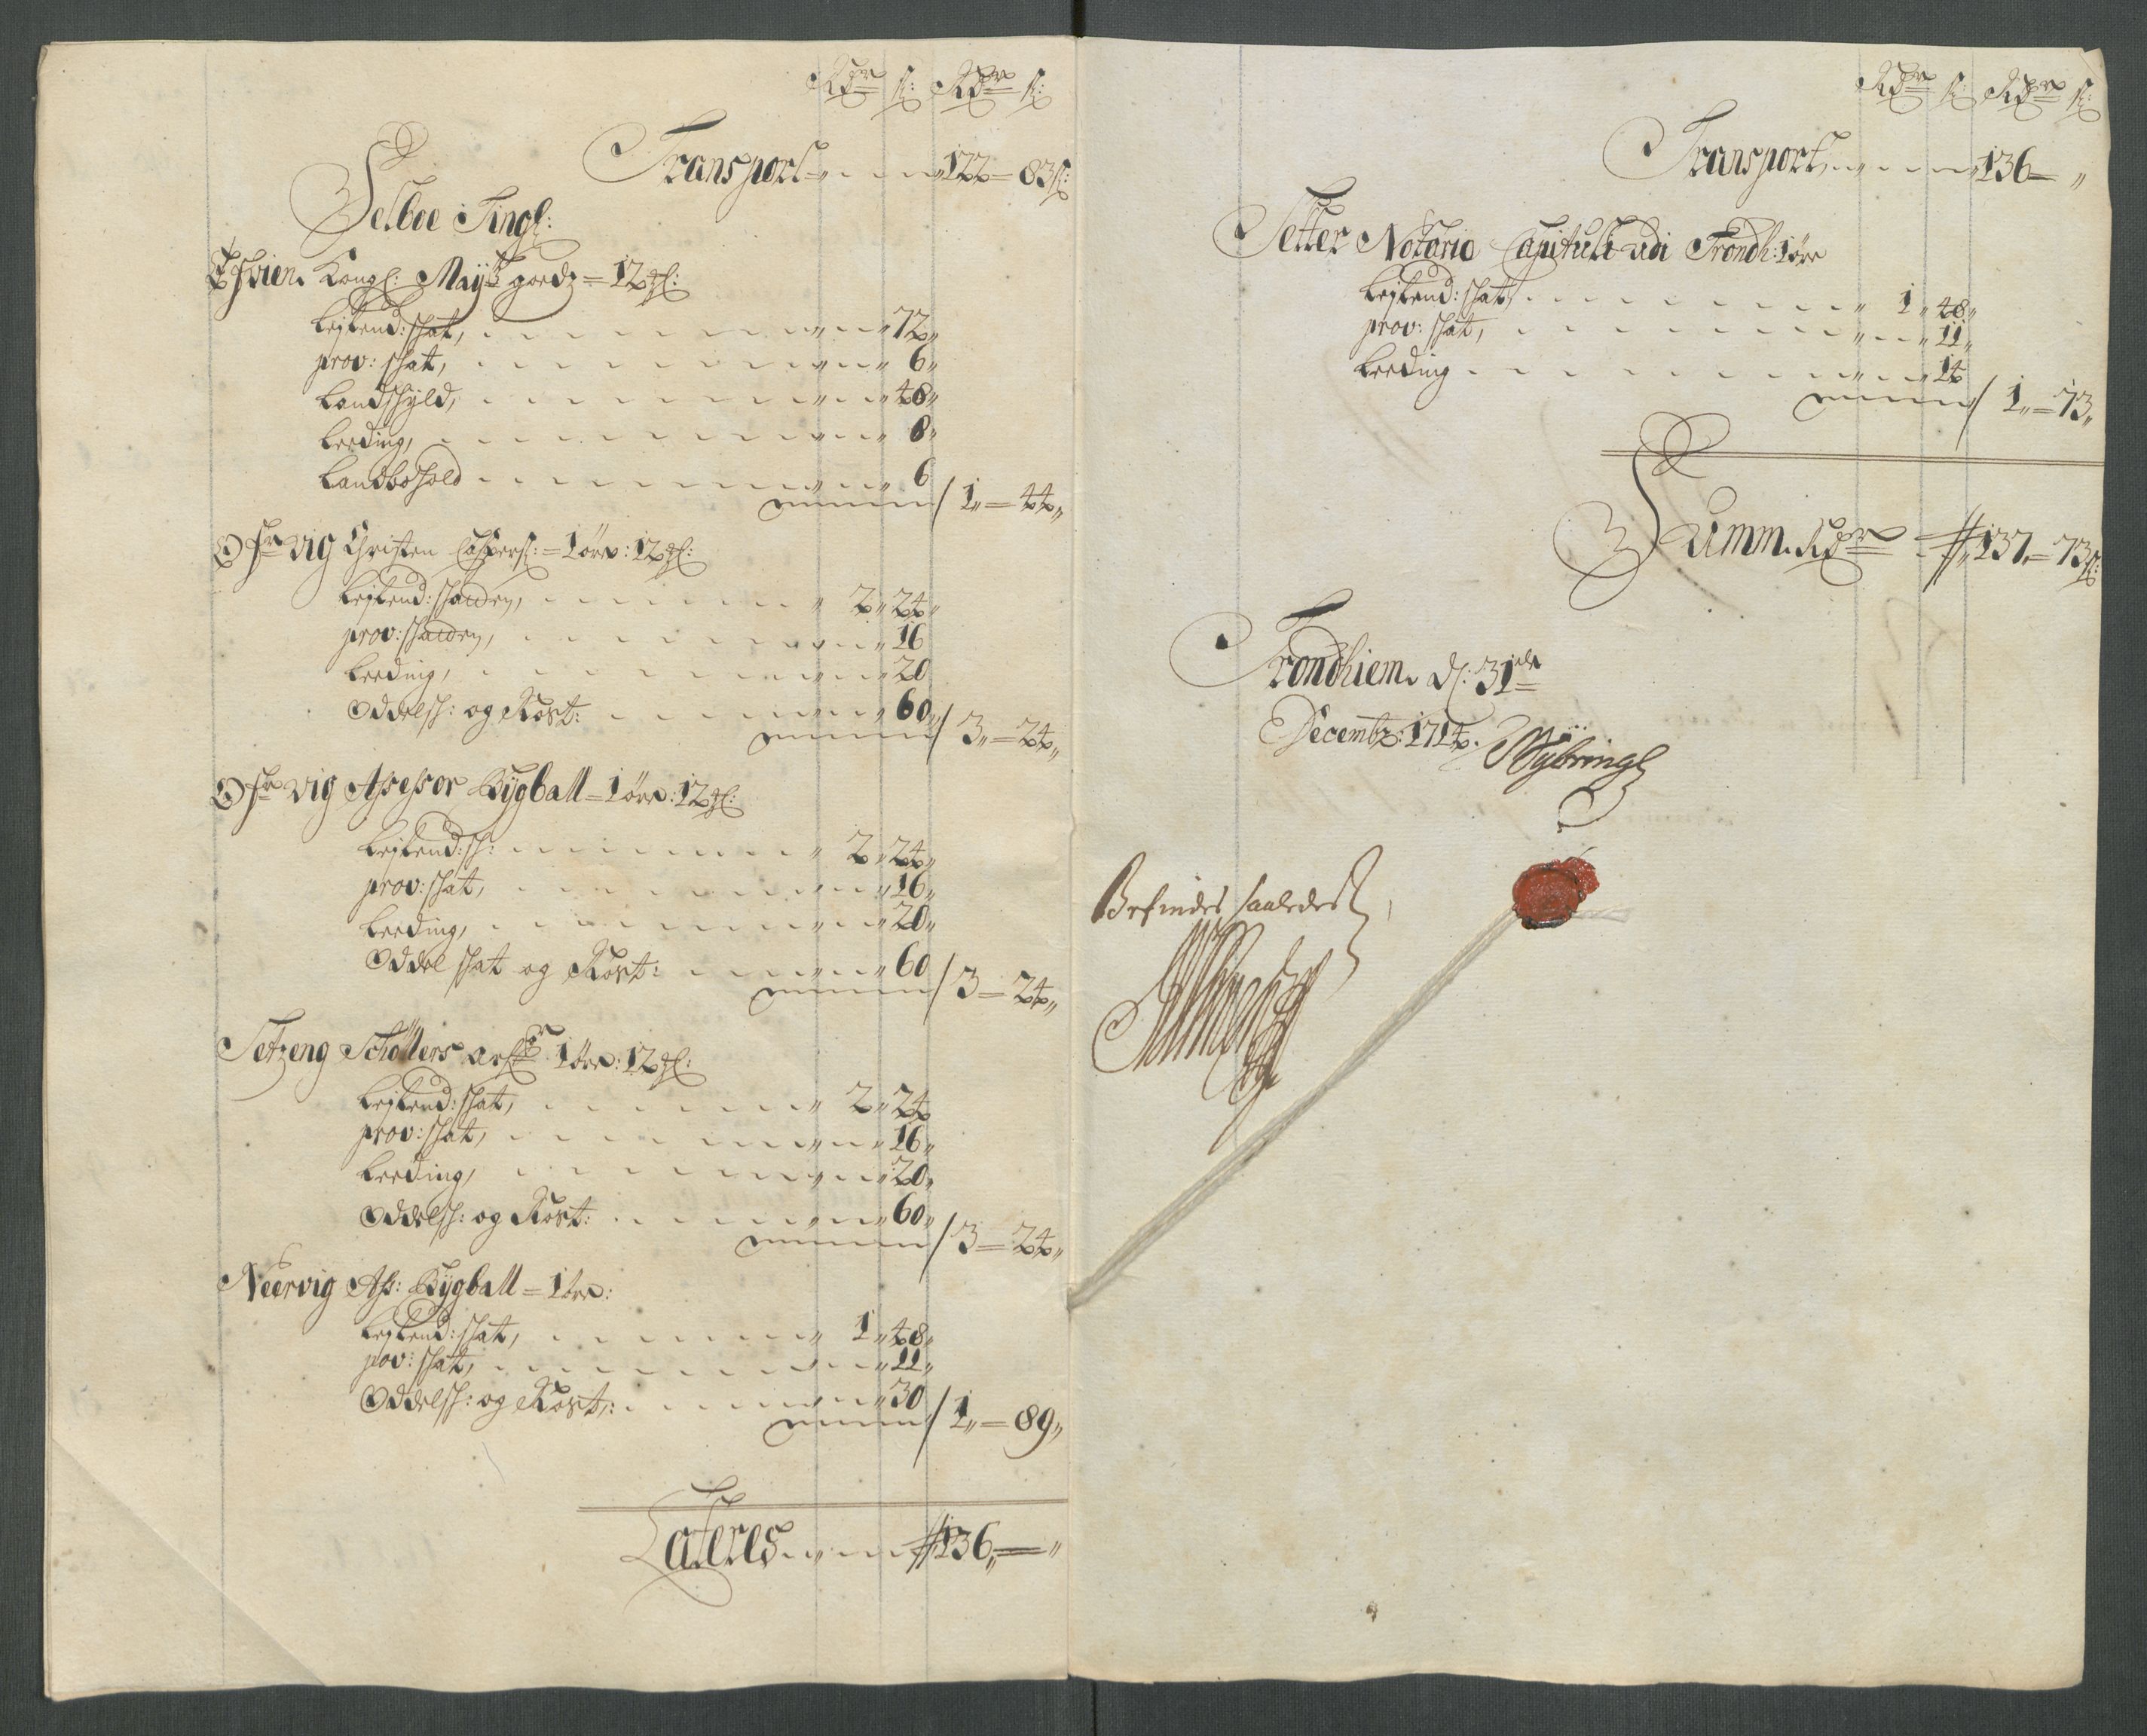 Rdr ß: Rdr ß:
Transport 122 = 83 ß:
Selboe Tingl:
Eftvien Kongl: Mayts goedz = 12 ml:
Leylend: schat, 72
prov: schat, 6
Landschyld, 48
Leeding, 8
Landbohold 6
/ 1 = 44
Ofr vig Christen Caspers: = 1 öre: 12 ml:
Leylend: schatten, 2 24
prov: schatten, 16
Leeding, 20
Oddelsh: og Kost: 60
/ 3 = 24
Ofr vig Assessor Bÿgball = 1 öre: 12 ml:
Leylend: sh: 2 24
prov: schat, 16
Leeding, 20
Oddel schat og Kost: 60
/ 3 = 24
Setzeng Schøllers arfgr 1 öre: 12 ml:
Leylend: schat, 2 24
prov: schat, 16
Leeding, 20
Oddelsh: og Kost: 60
/ 3 = 24
Neervig Ass: Bÿgball = 1 öre:
Leylend: schat, 1 48
pov: schat, 11
Oddelsh: og Kost: 30
/ 1 = 89
Lateris 136 =
Rdr ß: Rdr ß:
Transport 136 =
Setter Notario Capituli udi Trondh: 1 öre
Leylend: schat 1 48
prov: schat, 11
Leeding 14
/ 1 = 73
Summa Rdr 137 = 73 ß:
Trondhiem d: 31de
Decembr: 1714.
Befindes saaledes